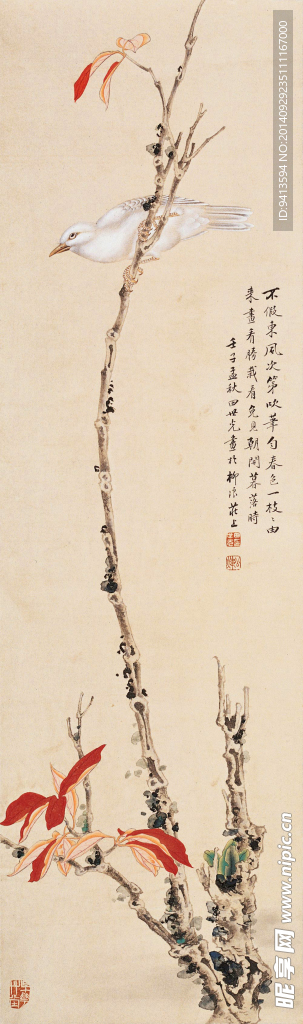 不假東風次第吹筆勻春色一枝〻由
来畫看勝栽看免見朝開暮落時
壬子孟秋田世光畫於柳浪莊上
ID:9413594 NO:20140929235111167000
昵享网 www.nipic.cn